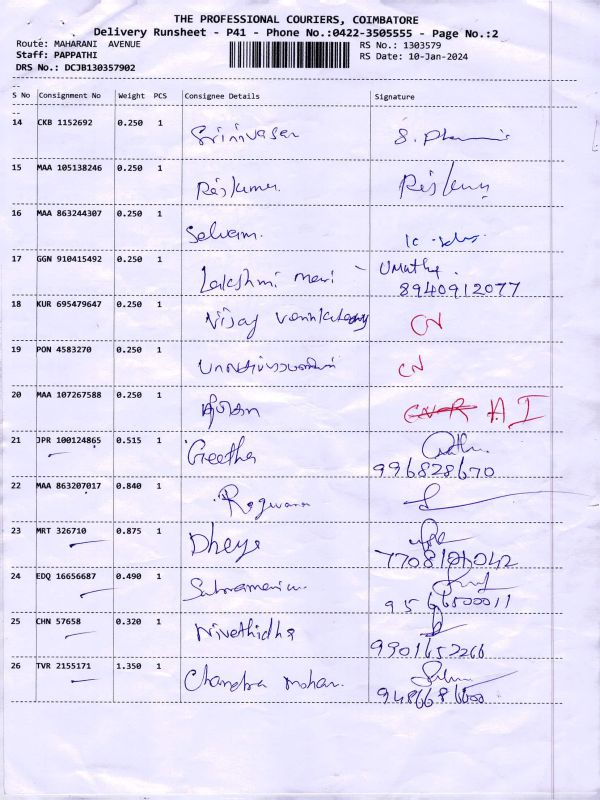 THE PROFESSIONAL COURIERS, COIMBATORE
Delivery Runsheet - P41 - Phone No.:0422-3505555 - Page No.:2
Route: MAHARANI AVENUE
RS No.: 1303579
Staff: PAPPATHI
RS Date: 10-Jan-2024
DRS No.: DCJB130357902
S No Consignment No Weight PCS Consignee Details Signature
14 CKB 1152692 0.250 1 Srinivasan
15 MAA 105138246 0.250 1
16 MAA 863244307 0.250 1 Selvam.
17 GGN 910415492 0.250 1 Lakshmi - Umathy.
8940912077
18 KUR 695479647 0.250 1 Vijay CN
19 PON 4583270 0.250 1 CN
20 MAA 107267588 0.250 1 AI
21 JPR 100124865 0.515 1 Geetha
996828670
22 MAA 863207017 0.840 1
23 MRT 326710 0.875 1
24 EDQ 16656687 0.490 1
25 CHN 57658 0.320 1 Nivethidha
9901652266
26 TVR 2155171 1.350 1 Chandra mohan.